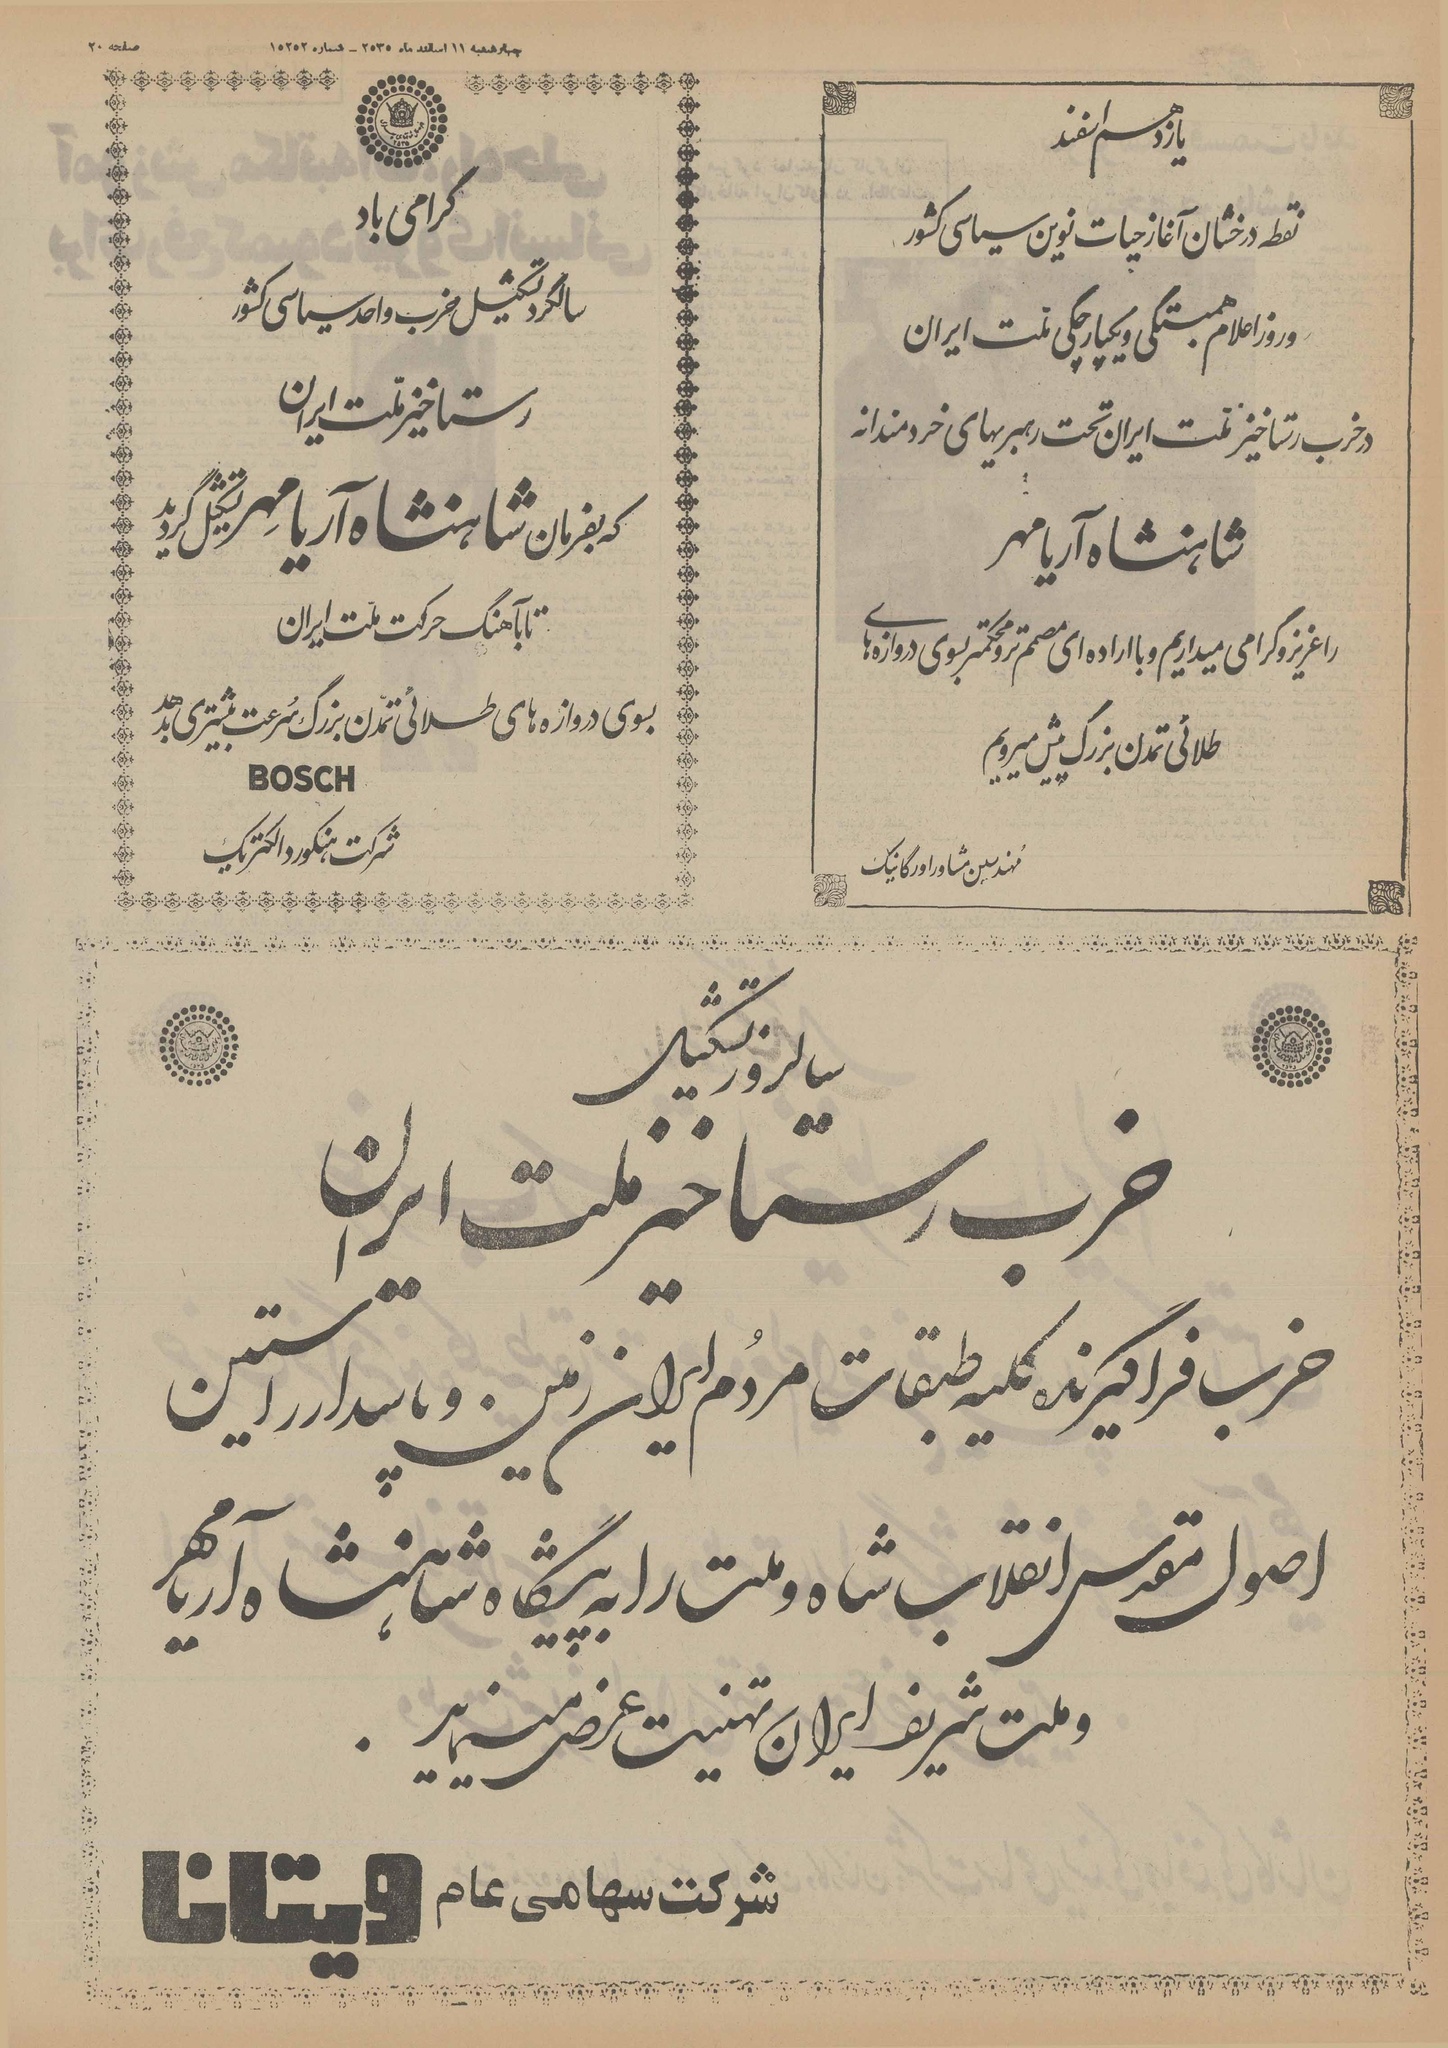 صفحه ۲۰
چهارشنبه ۱۱ اسفند ماه ۲۵۳۵ - شماره ۱۵۲۵۲
یازدهم اسفند
نقطه درخشان آغاز حیات نوین سیاسی کشور
و روز اعلام همبستگی و یکپارچگی ملت ایران
در حزب رستاخیز ملت ایران تحت رهبریهای خردمندانه
شاهنشاه آریامهر
را عزیز و گرامی میداریم و با اراده ای مصمم تر و محکمتر بسوی دروازه های
طلائی تمدن بزرگ پیش میرویم
مهندسین مشاور اورگانیک
گرامی باد
سالگرد تشکیل حزب واحد سیاسی کشور
رستاخیز ملت ایران
که بفرمان شاهنشاه آریامهر تشکیل گردید
تا بآهنگ حرکت ملت ایران
بسوی دروازه های طلائی تمدن بزرگ سرعت بیشتری بدهد
BOSCH
شرکت هنکورد الکتریک
سالروز تشکیل
حزب رستاخیز ملت ایران
حزب فراگیرنده کلیه طبقات مردم ایران زمین و پاسدار راستین
اصول مقدس انقلاب شاه و ملت را به پیشگاه شاهنشاه آریامهر
و ملت شریف ایران تهنیت عرض مینماید .
شرکت سهامی عام ویتانا